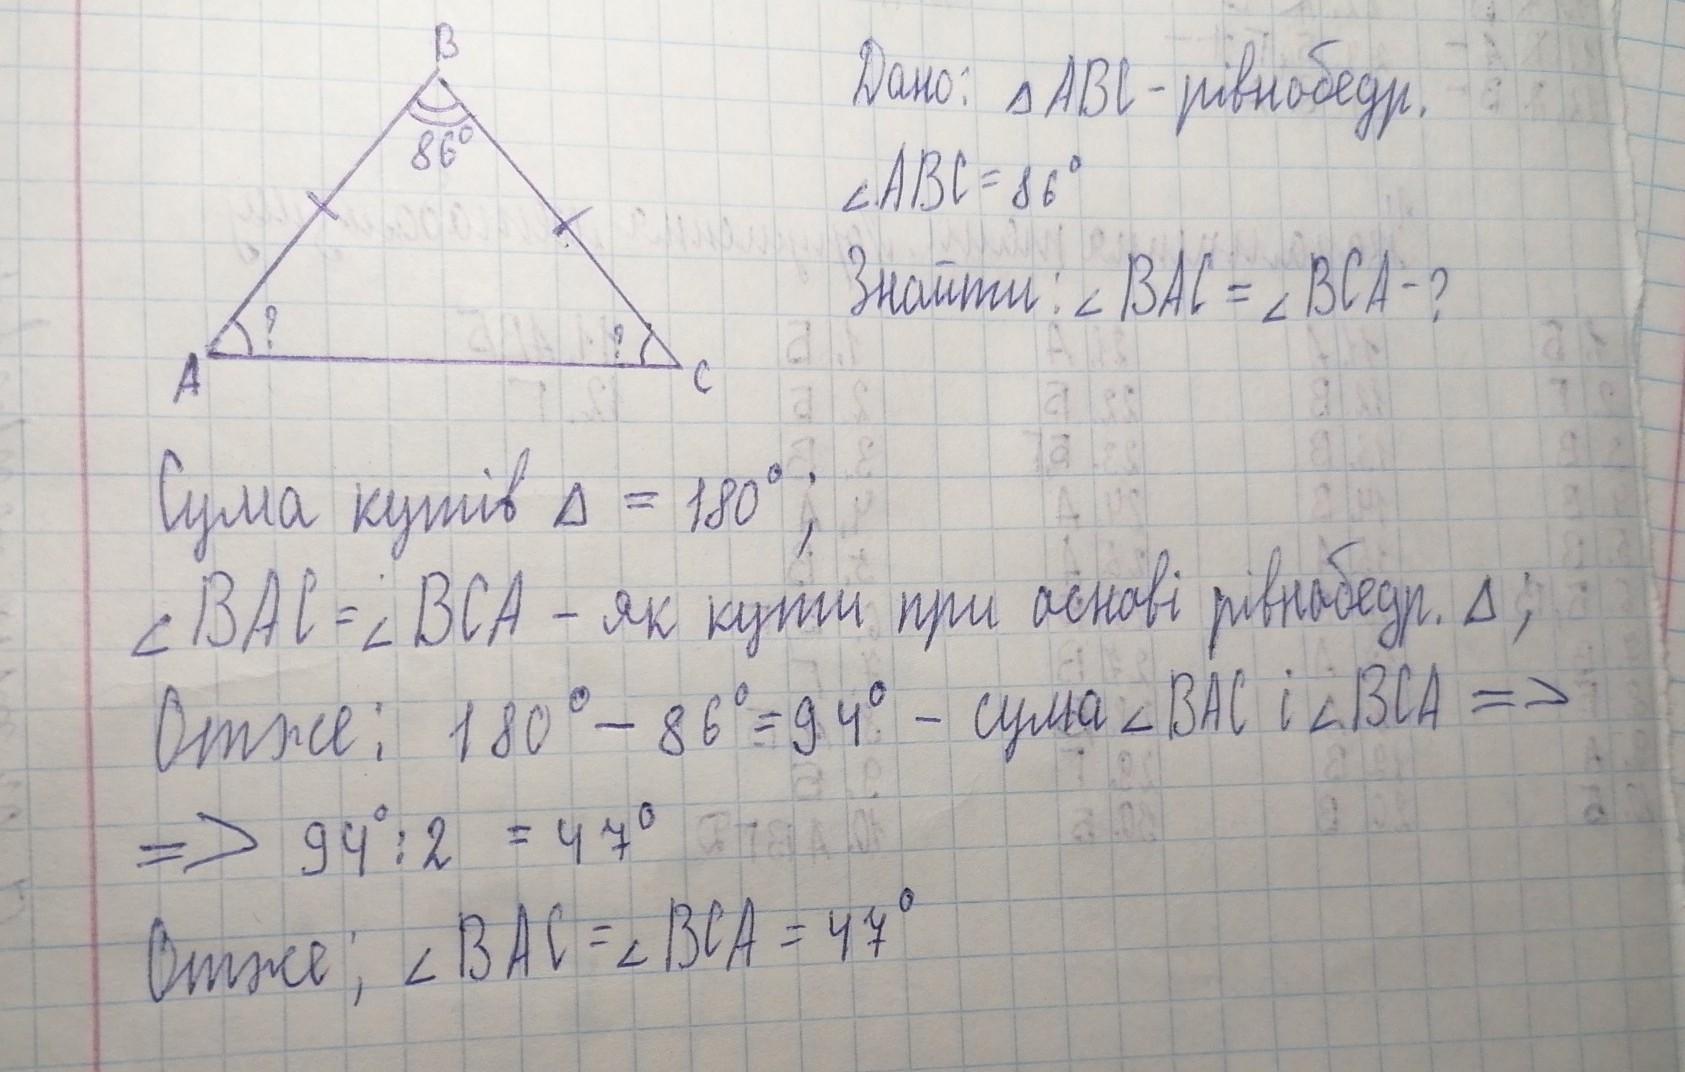 B
86°
A
?
?
C
Дано: △ABC - рівнобедр.
∠ABC = 86°
Знайти: ∠BAC = ∠BCA - ?
Сума кутів △ = 180°;
∠BAC = ∠BCA - як кути при основі рівнобедр. △;
Отже: 180° - 86° = 94° - сума ∠BAC і ∠BCA =>
=> 94° : 2 = 47°
Отже; ∠BAC = ∠BCA = 47°